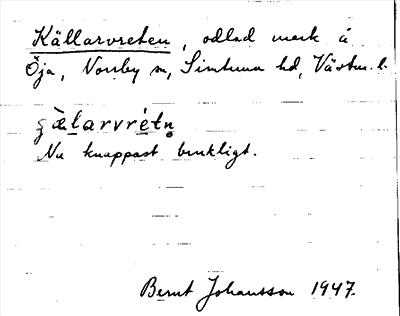 Källarvreten, odlad mark å
Öja, Norrby sn, Simtuna hd, Västm. l.
ʒä̀larvrétn̥
Nu knappast brukligt.
Bernt Johansson 1947.